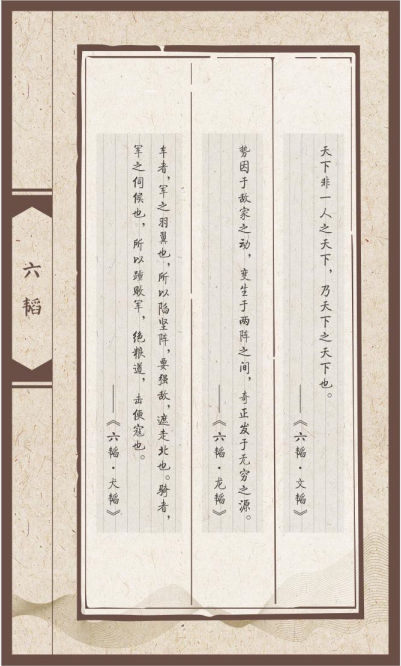 天下非一人之天下，乃天下之天下也。
——《六韬·文韬》
势因于敌家之动，变生于两阵之间，奇正发于无穷之源。
——《六韬·龙韬》
车者，军之羽翼也，所以陷坚阵，要强敌，遮走北也。骑者，
军之伺候也，所以踵败军，绝粮道，击便寇也。
——《六韬·犬韬》
六韬